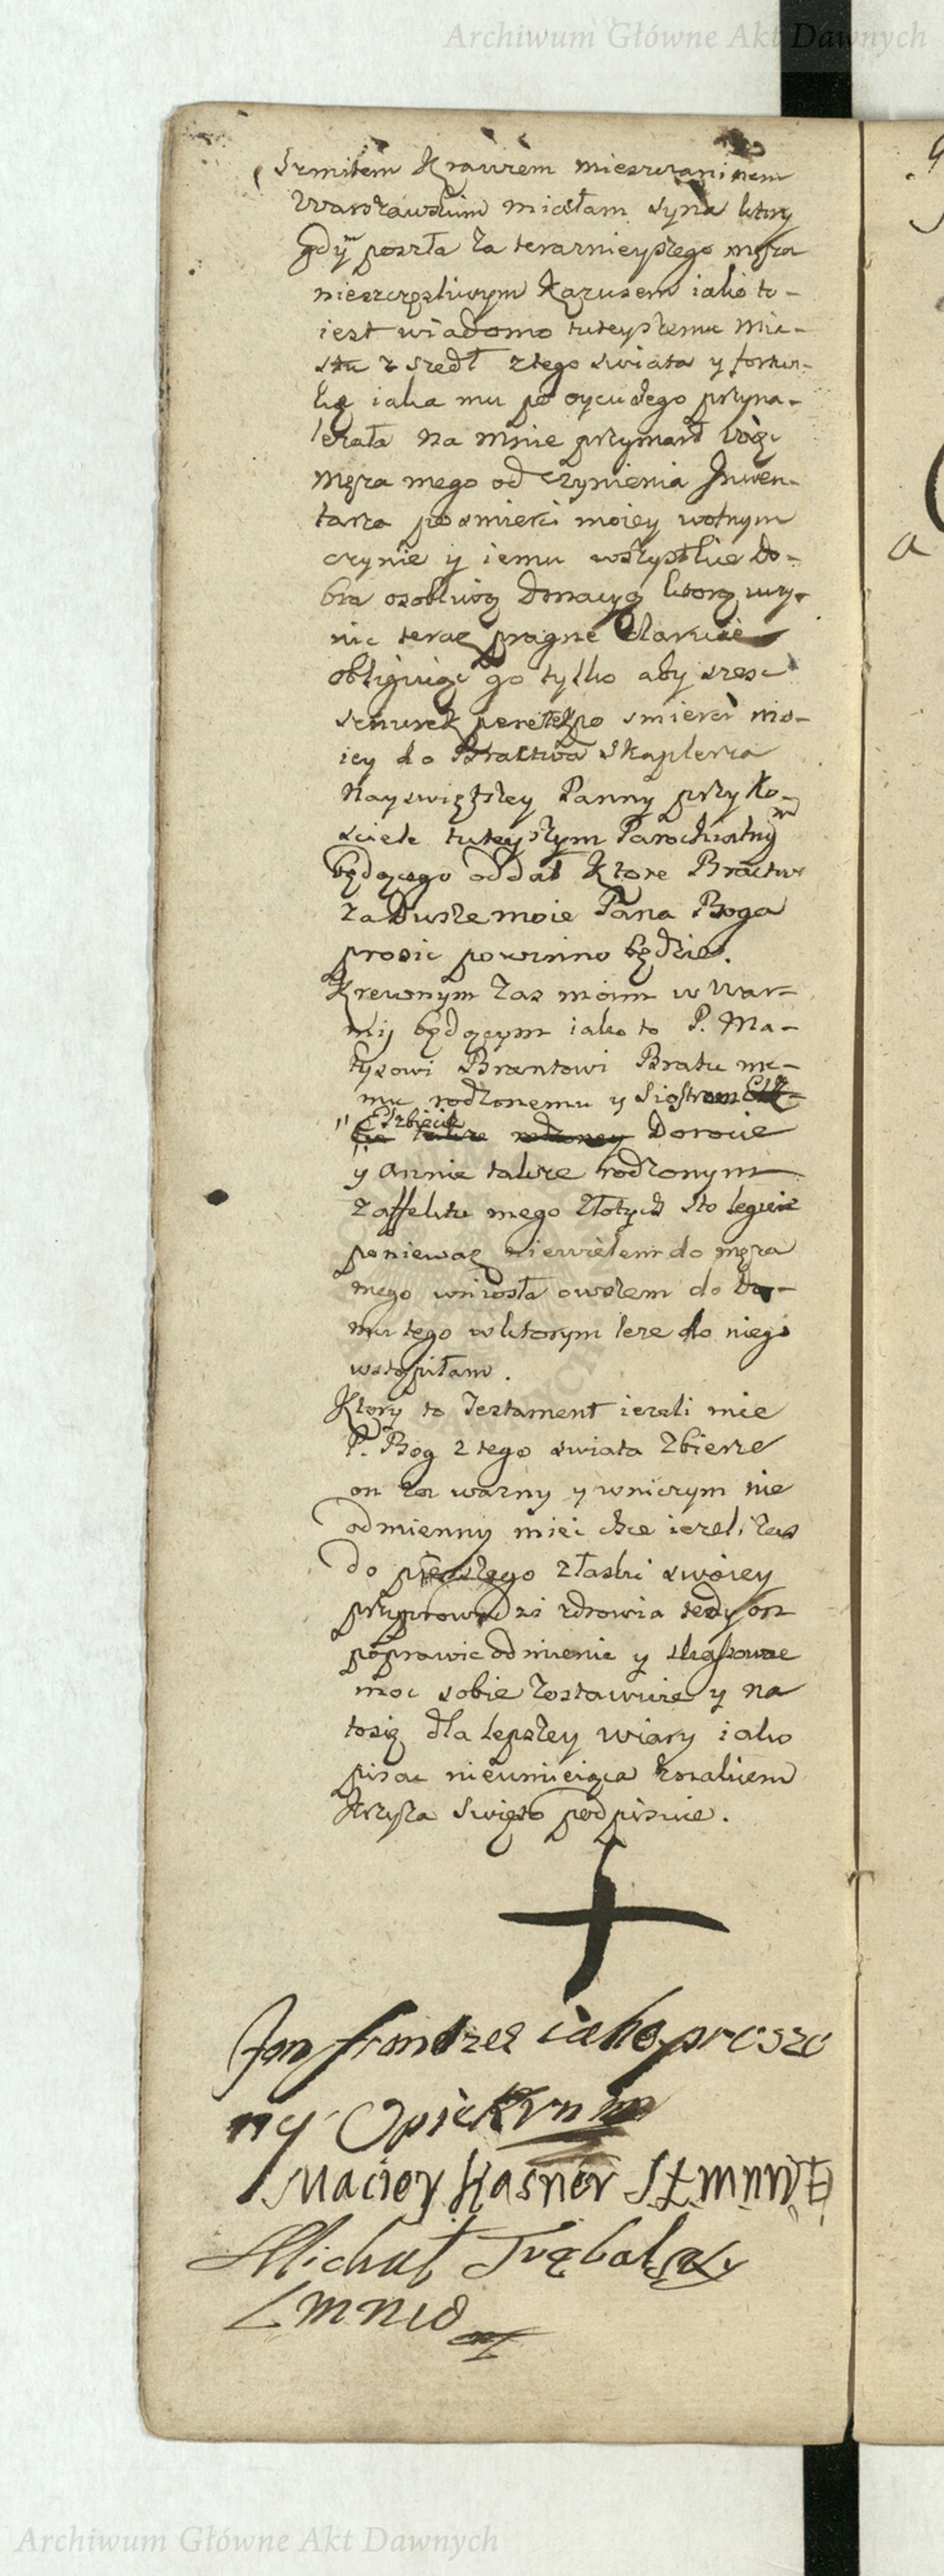 Archiwum Główne Akt Dawnych
Szmitem Krawcem mieszczaninem
Warszawskim miałam syna ktory
gdym poszła za teraznieyszego męza
nieszczęsliwym Kazusem iako to-
iest wiadomo tuteyszemu Mie-
stu z szedł z tego swiata y fortun-
kę iaka mu po oycu iego przyna-
lezała na mnie
Męza mego od czynienia Inwen-
tarza po smierci moiey wolnym
czynie y iemu wszystkie Do-
bra osobliwą Donacyą ktorą uczy-
nic teraz pragne Daruie
obliguiąc go tylko aby szesc
sznurek perełek po smierci mo-
iey do Bractwa Szkaplerza
Nayswiętszey Panny przy Ko-
sciele tuteyszym Parochialnym
będącego oddał Ktore Bractwo
za Dusze moie Pana Boga
prosic powinno będzie.
Krewnym zas moim w War-
mij będącym iako to P. Ma-
tyszowi Brantowi Bratu me-
mu rodzonemu y Siostrom
Elzbiecie
takze rodzoney Dorocie
y Annie takze rodzonym
z affektu mego złotych sto leguie
poniewaz niewielem do męza
mego wniosła owszem do Do-
mu tego w ktorym leze do niego
wstąpiłam.
Ktory to Testament iezeli mie
P. Bog z tego swiata zbierze
on za wazny y wniczym nie
odmienny miec chce iezeli zas
do pierwszego z łaski swoiey
przyprowadzi zdrowia tedy on
poprawic odmienic y skassowac
moc sobie zostawuie y na
tosię dla lepszey wiary iako
pisac nieumieiąca znakiem
Krzyza Swięto podpisuie.
Jan iako proszo
ny Opiekun
Maciey Kasner
Michał